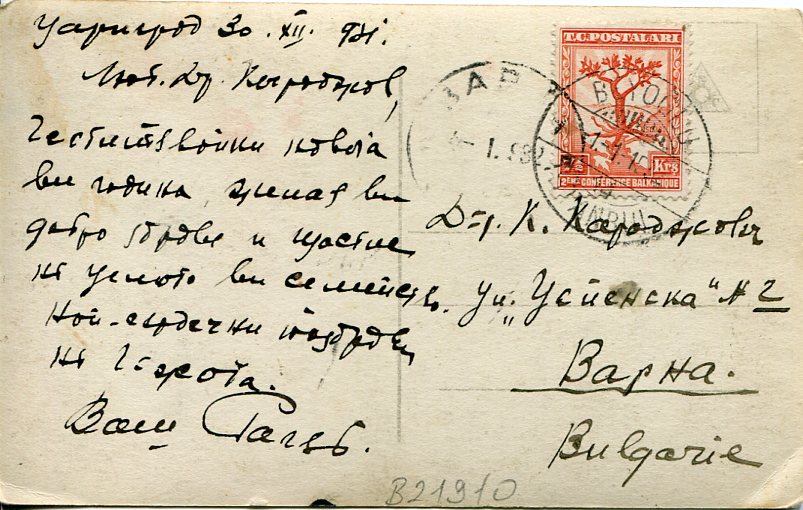 Цариград 30. XII. 931.
Люб. Др. Кароджов,
Честитявайки новата
ви година, желая ви
добро здраве и щастие
на цялото ви семейство.
Най-сърдечни поздрави
на г-жата.
Ваш
T.C. POSTALARI
7½ Krş
2ÈME CONFÉRENCE BALKANIQUE
BEYOĞLU
ISTANBUL
ВАР
I. 932
Д-р. К. Кароджовъ
ул. „Успенска“ № 2
Варна.
Bulgarie
B21910